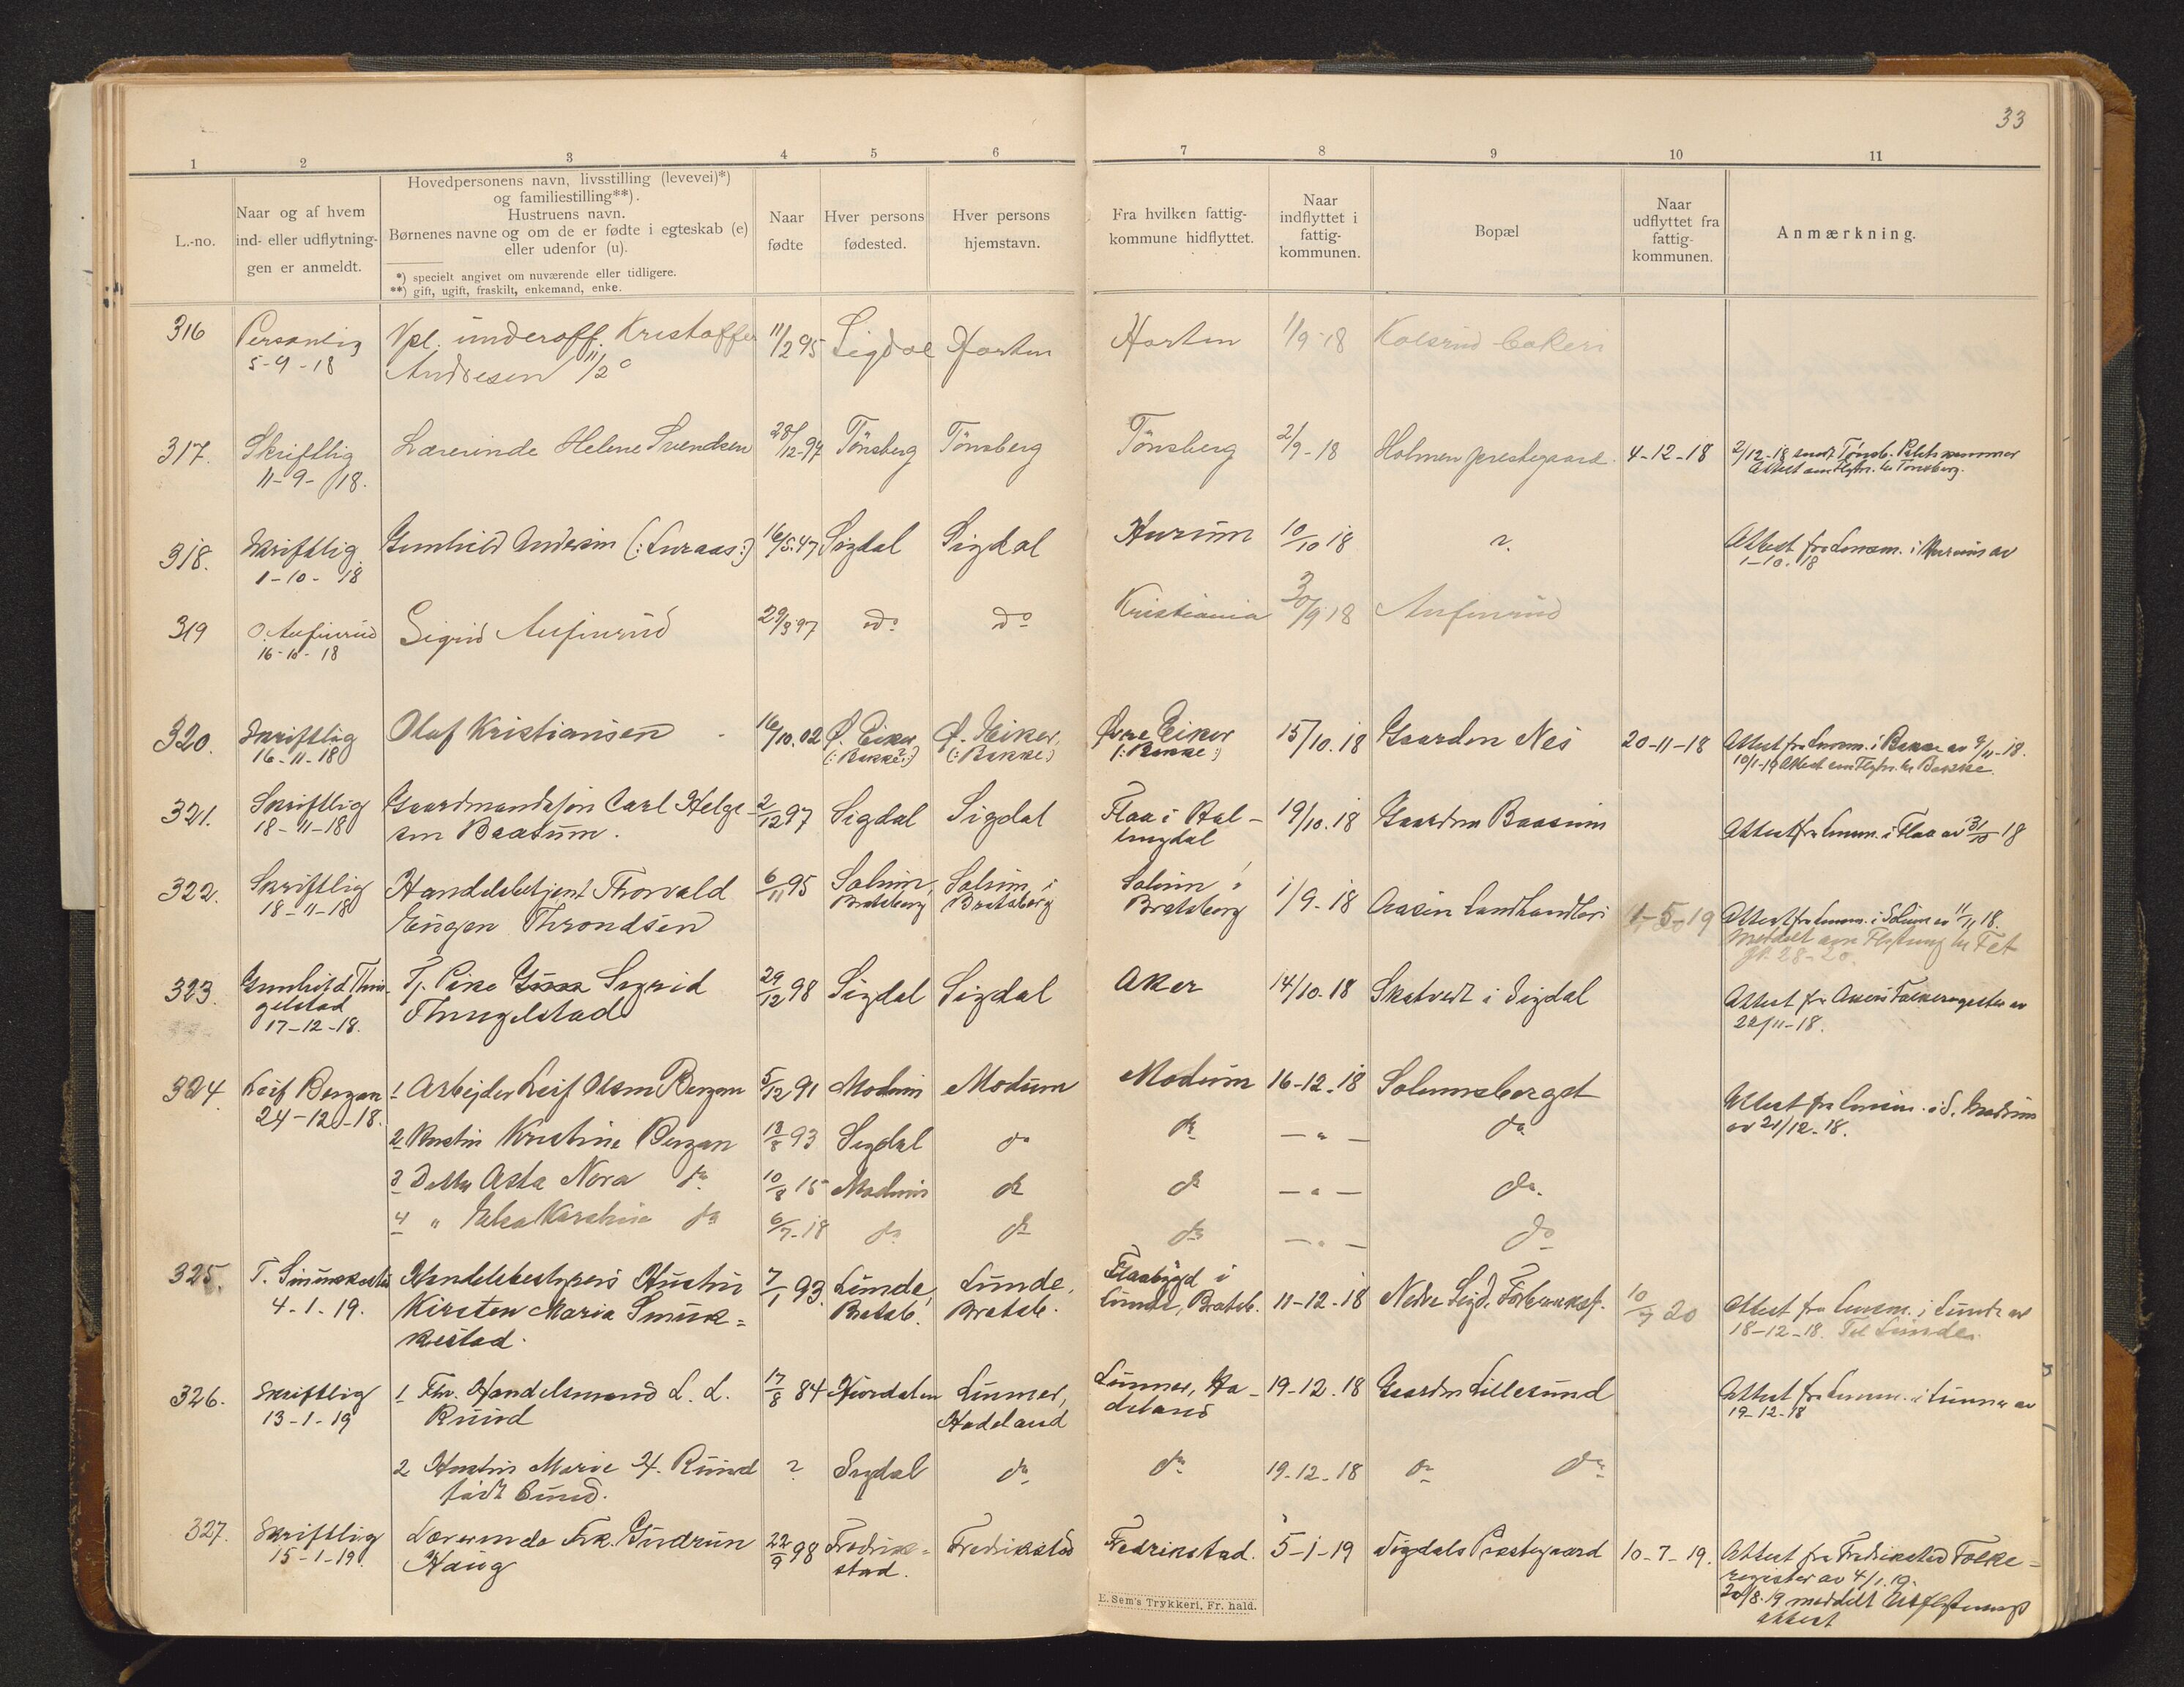 33
1 2 3 4 5 6 7 8 9 10 11
L.-no.
Naar og af hvem
ind- eller udflytnin-
gen er anmeldt.
Hovedpersonens navn, livsstilling (levevei)*)
og familiestilling**).
Hustruens navn.
Børnenes navne og om de er fødte i egteskab (e)
eller udenfor (u).
*) specielt angivet om nuværende eller tidligere.
**) gift, ugift, fraskilt, enkemand, enke.
Naar
fødte
Hver persons
fødested.
Hver persons
hjemstavn.
Fra hvilken fattig-
kommune hidflyttet.
Naar
indflyttet i
fattig-
kommunen.
Bopæl
Naar
udflyttet fra
fattig-
kommunen.
Anmærkning.
316 Personlig Vpl. underoff. Kristoffer 11/2 95 Sigdal Horten Horten 1/9-18 Kolsrud bakeri
5-9-18 Andresen 11/2
317. Skriftlig Lærerinde Helene Svendsen 28/12-97 Tønsberg Tønsberg Tønsberg 2/9-18 Holmen prestegaard. 4-12-18 2/12-18 sendt Tønsb. Politikammer
11-9-18. Attest om Flytn. til Tønsberg.
318. Skriftlig Gunhild Andersen (:Luraas:) 16/5.47 Sigdal Sigdal Hurum 10/10 18 ?. Attest fra Lensm. i Hurum av
1-10-18 1-10.18
319 O. Aufinrud Sigrid Aufinrud 29/3 97 do do Kristiania 30/9 18 Aufinrud
16-10-18
320. Skriftlig Olaf Kristiansen 16/10.02 Ø. Eiker Ø. Eiker, Øvre Eiker 15/10.18 Gaarden Nes 20-11-18 Attest fra Lensm. i Bakke av 9/11-18.
16-11-18 (:Bakke:) (:Bakke:) (:Bakke:) 10/1-19 Attest om Flytn. til Bakke.
321. Skriftlig Gaardmandssøn Carl Helge- 2/12 97 Sigdal Sigdal Flaa i Hal- 19/10.18 Gaarden Baasum Attest fra Lensm. i Flaa av 31/10-18
18-11-18 sen Baasum. lingdal
322. Skriftlig Handelsbetjent Thorvald 6/11 95 Solum, Solum i Solum i 1/9-18 Aasen Landhandleri 1-5-19 Attest fra Lensm. i Solum av 11/11 18.
18-11-18 Eugen Throndsen Bratsberg Bratsberg Bratsberg Meddelt om Flytning til Fet
323. Gunhild Thin- Tj. Pike Sigrid 29/12 98 Sigdal Sigdal Aker 14/10-18 Skatvedt i Sigdal Attest fra Akers Folkeregister av
gelstad Thingelstad 22/11-18.
17-12-18.
324. Leif Bergan 1 Arbejder Leif Olsen Bergan 5/12 91 Modum Modum Modum 16-12-18 Solumsberget Attest fra Lensm. i S. Modum
24-12-18. av 21/12-18.
2 Hustru Kristine Bergan 13/8 93 Sigdal do do - " - do
3 Datter Asta Nora do 10/8 15 Modum do do - " - do.
4 " Karstine do 6/7-18 do do do - " - do
325. T. Handelsbestyrers Hustru 7/1 93. Lunde, Lunde, Flaabygd i 11-12-18 Nedre Sigd. Forbruksf. 10/7 20 Attest fra Lensm. i Lunde av
4-1-19. Kirsten Maria Smuk- Bratsb. Bratsb. Lunde, Bratsb. 18-12-18. Til Lunde.
kestad.
326. Skriftlig 1 Fhv. Handelsmand L. L. 17/8 84 Hurdalen Lunner, Lunner, Ha- 19-12.18 Gaarden Lillesund Attest fra Lensm. i Lunner av
13-1-19 Ruud Hadeland deland 19-12-18
2 Hustru Marie H. Ruud ? Sigdal do do 19-12-18 do do
født
327. Skriftlig Lærerinde Frk. Gudrun 22/9 98 Fredrik- Fredrikstad Fredrikstad. 5-1-19 Sigdals Prestegaard 10-7-19. Attest fra Fredrikstad Folke-
15-1-19 Haug stad. register av 4/1.19.
20/8.19 meddelt Utflytnings
attest
E. Sem's Trykkeri, Fr. hald.